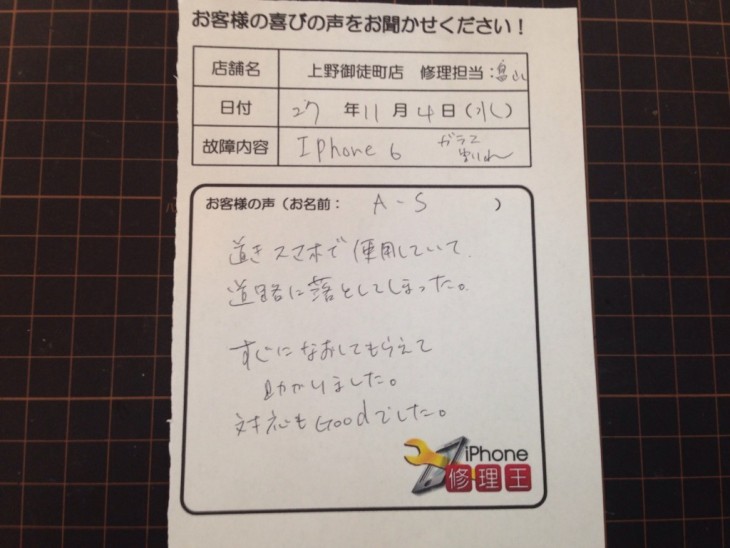 お客様の喜びの声をお聞かせください！
店舗名 上野御徒町店 修理担当：畠山
日付 27 年 11 月 4 日（水）
故障内容 Iphone 6 ガラス
われ
お客様の声（お名前： A-S ）
道きスマホで使用していて
道路に落としてしまった。
すぐになおしてもらえて
助かりました。
対応もGoodでした。
iPhone
修理王